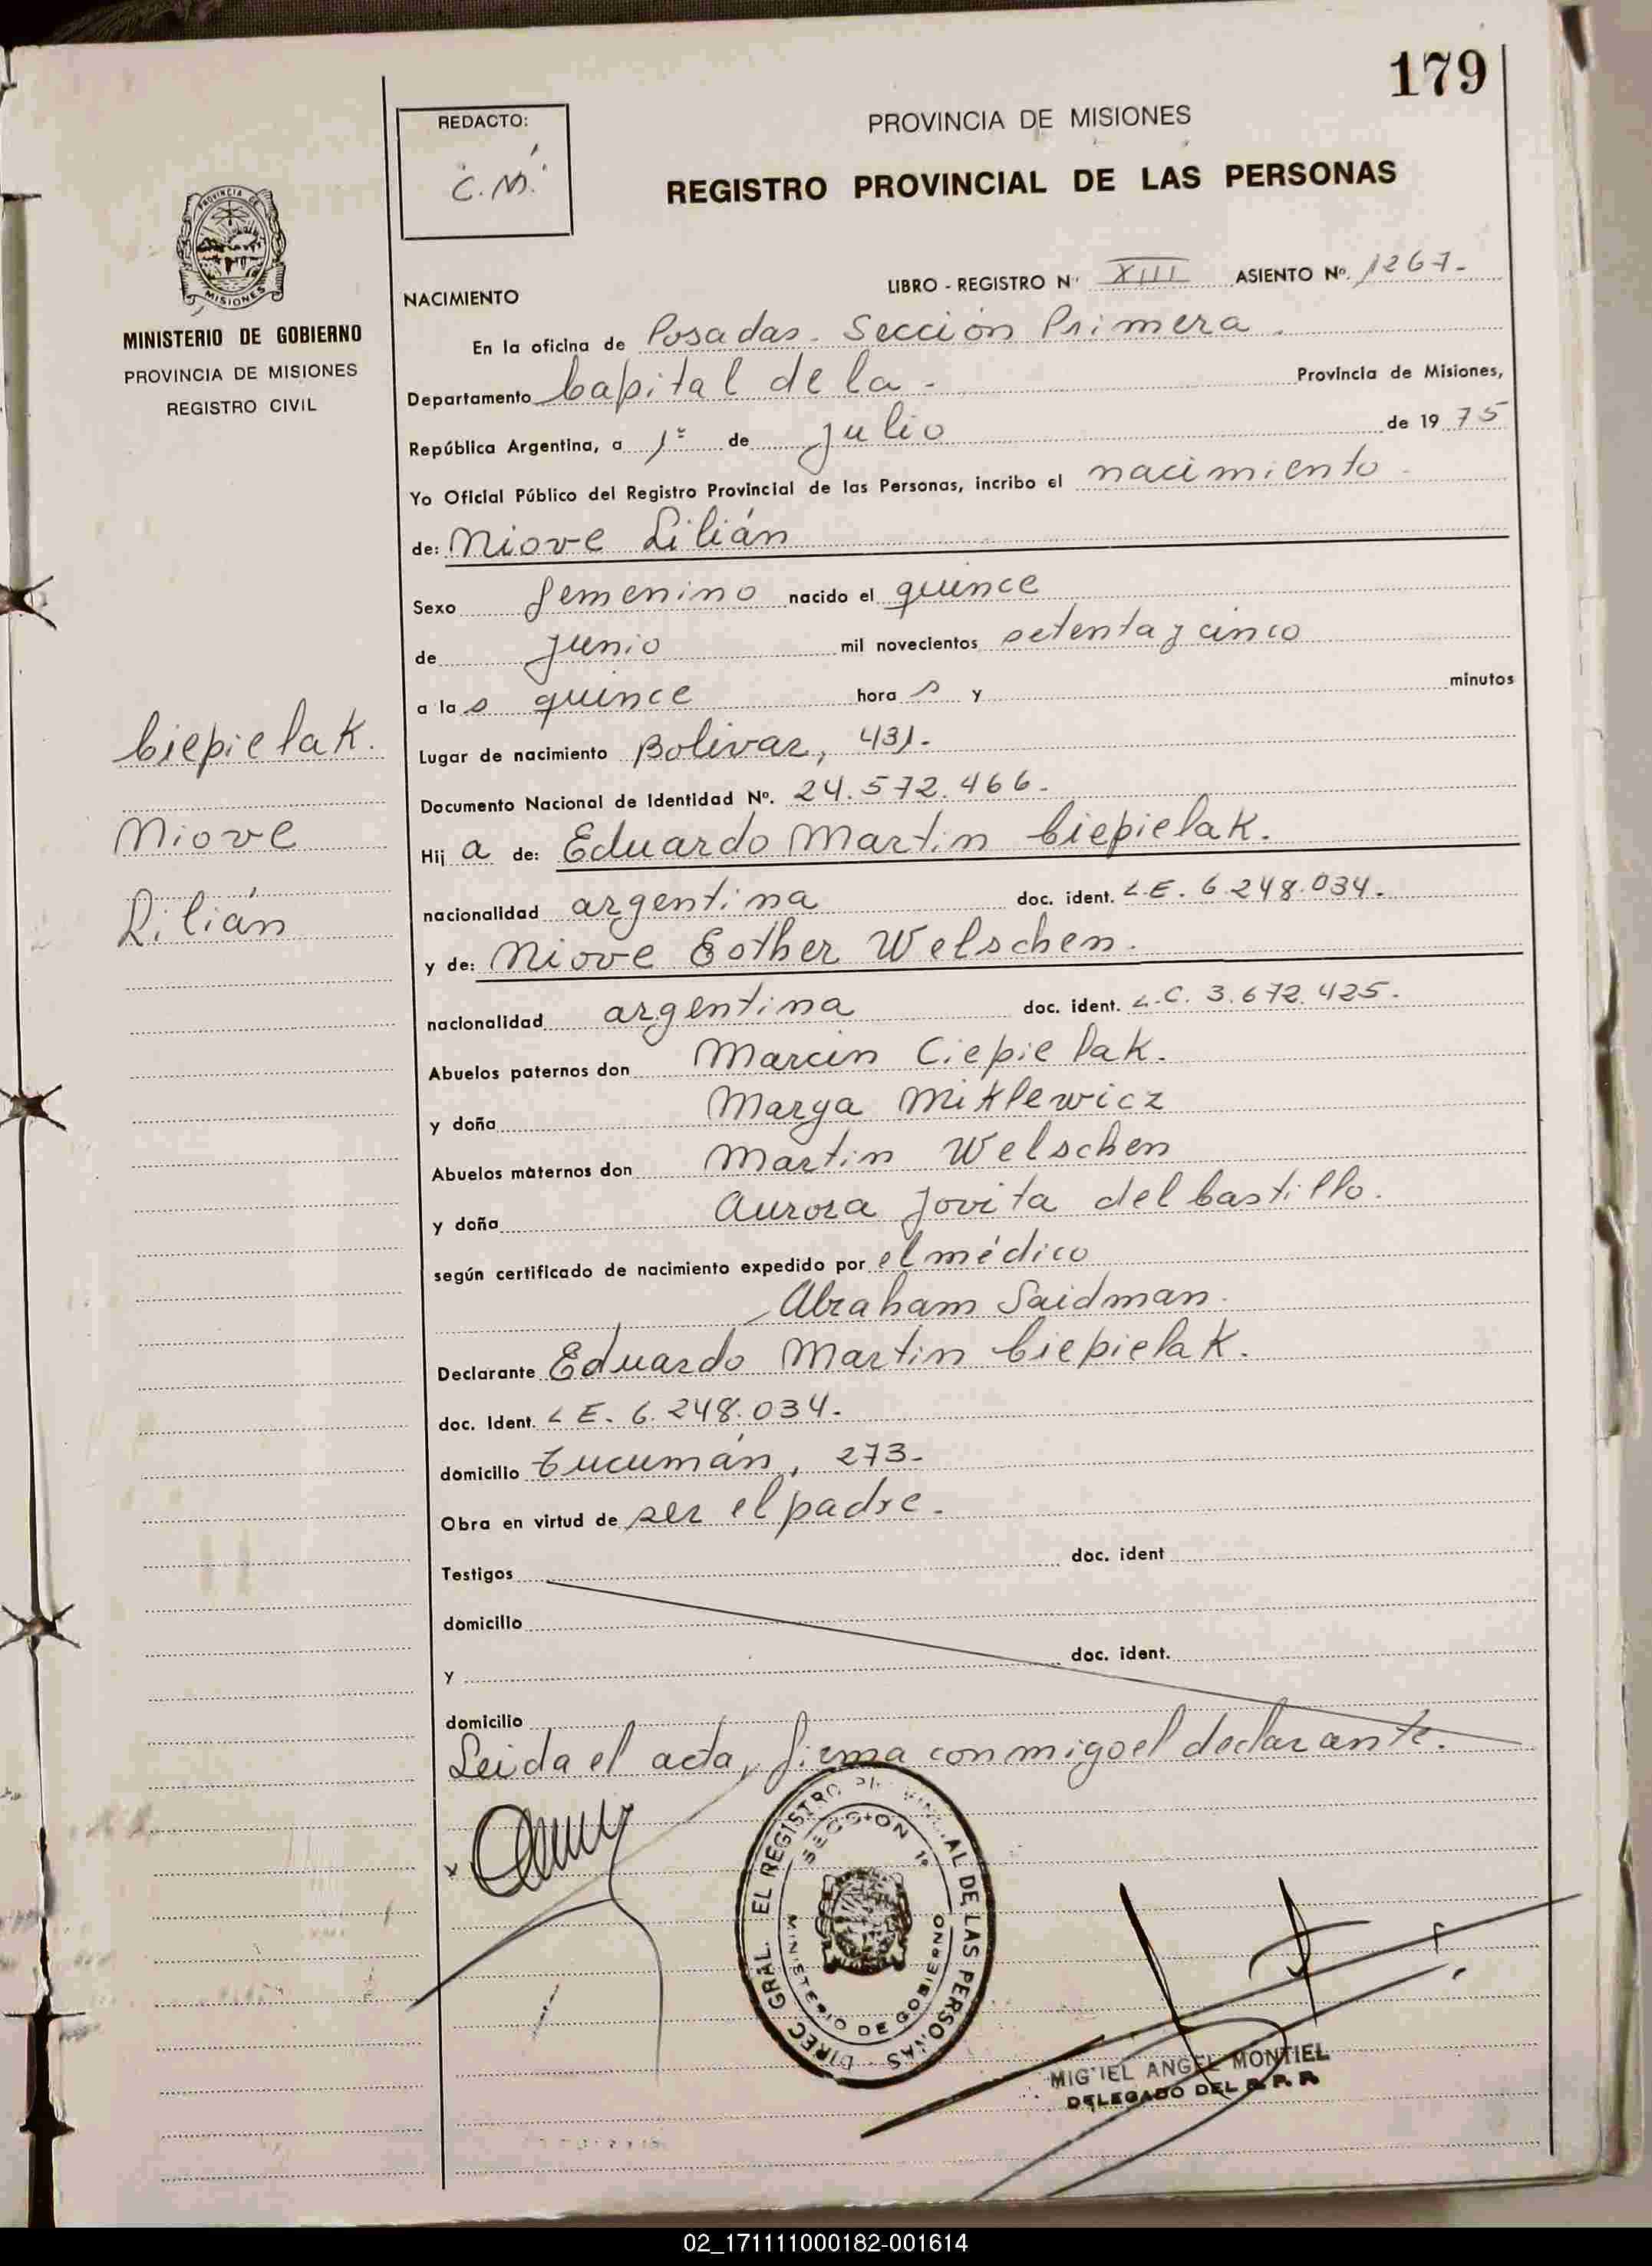 179
REDACTO:
C.M.
PROVINCIA DE MISIONES
REGISTRO PROVINCIAL DE LAS PERSONAS
PROVINCIA DE
MISIONES
MINISTERIO DE GOBIERNO
PROVINCIA DE MISIONES
REGISTRO CIVIL
LIBRO - REGISTRO N° XIII ASIENTO Nº. 1267-
NACIMIENTO
En la oficina de Posadas. Sección Primera.
Departamento Capital de la - Provincia de Misiones,
República Argentina, a 1º de julio de 1975
Yo Oficial Público del Registro Provincial de las Personas, incribo el nacimiento-
de: Niove Lilián
Sexo femenino nacido el quince
de junio mil novecientos setenta y cinco
a las quince horas y minutos
Lugar de nacimiento Bolivar, 431.
Documento Nacional de Identidad Nº. 24.572.466.
Hija de: Eduardo Martin Ciepielak.
nacionalidad argentina doc. ident. L.E. 6.248.034.
y de: Niove Esther Welschen.
nacionalidad argentina doc. ident. L.C. 3.672.425.
Abuelos paternos don Marcin Ciepielak.
y doña Marya Miklewicz
Abuelos maternos don Martin Welschen
y doña Aurora Jovita del Castillo.
según certificado de nacimiento expedido por el médico
Abraham Saidman.
Declarante Eduardo Martin Ciepielak.
doc. Ident. L E. 6.248.034.
domicilio Tucumán, 273-
Obra en virtud de ser el padre.
Testigos doc. ident
domicilio
y doc. ident.
domicilio
Leida el acta, firma conmigo el declarante.
Ciepielak.
Niove
Lilián
DIREC GRAL. EL REGISTRO AL DE LAS PERSONAS
SECCION 1ª
MINISTERIO DE GOBIERNO
MIGUEL ANGEL MONTIEL
DELEGADO DEL R. P. P.
02_171111000182-001614